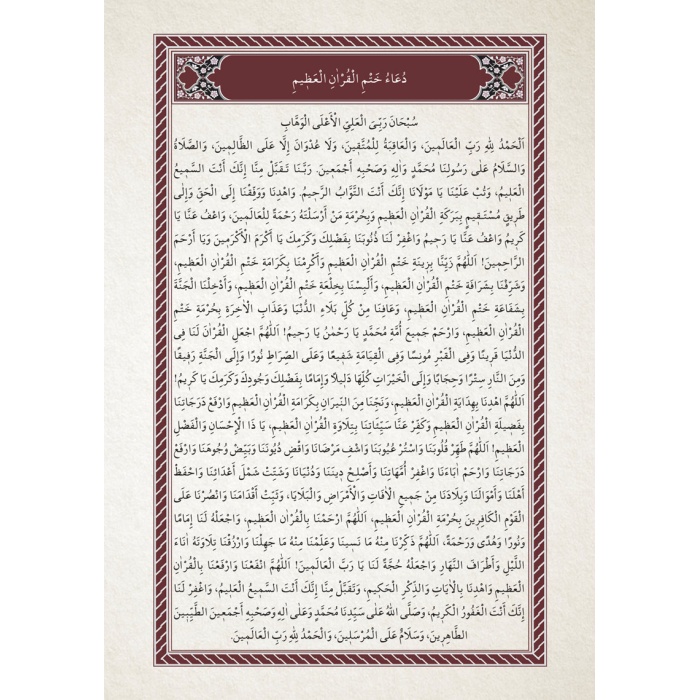 دُعَاءُ خَتْمِ الْقُرْاٰنِ الْعَظ۪يمِ
سُبْحَانَ رَبِّيَ الْعَلِيِّ الْأَعْلَى الْوَهَّابِ
اَلْحَمْدُ لِلّٰهِ رَبِّ الْعَالَم۪ينَ، وَالْعَاقِبَةُ لِلْمُتَّق۪ينَ، وَلَا عُدْوَانَ إِلَّا عَلَى الظَّالِم۪ينَ، وَالصَّلَاةُ
وَالسَّلَامُ عَلٰى رَسُولِنَا مُحَمَّدٍ وَاٰلِهِ وَصَحْبِهِ أَجْمَع۪ينَ. رَبَّنَا تَقَبَّلْ مِنَّا إِنَّكَ أَنْتَ السَّم۪يعُ
الْعَل۪يمُ، وَتُبْ عَلَيْنَا يَا مَوْلَانَا إِنَّكَ أَنْتَ التَّوَّابُ الرَّح۪يمُ. وَاهْدِنَا وَوَفِّقْنَا إِلَى الْحَقِّ وَإِلٰى
طَر۪يقٍ مُسْتَق۪يمٍ بِبَرَكَةِ الْقُرْاٰنِ الْعَظ۪يمِ وَبِحُرْمَةِ مَنْ أَرْسَلْتَهُ رَحْمَةً لِلْعَالَم۪ينَ، وَاعْفُ عَنَّا يَا
كَر۪يمُ وَاعْفُ عَنَّا يَا رَح۪يمُ وَاغْفِرْ لَنَا ذُنُوبَنَا بِفَضْلِكَ وَكَرَمِكَ يَا أَكْرَمَ الْأَكْرَم۪ينَ وَيَا أَرْحَمَ
الرَّاحِم۪ينَ! اَللّٰهُمَّ زَيِّنَّا بِز۪ينَةِ خَتْمِ الْقُرْاٰنِ الْعَظ۪يمِ وَأَكْرِمْنَا بِكَرَامَةِ خَتْمِ الْقُرْاٰنِ الْعَظ۪يمِ،
وَشَرِّفْنَا بِشَرَافَةِ خَتْمِ الْقُرْاٰنِ الْعَظ۪يمِ، وَأَلْبِسْنَا بِخِلْعَةِ خَتْمِ الْقُرْاٰنِ الْعَظ۪يمِ، وَأَدْخِلْنَا الْجَنَّةَ
بِشَفَاعَةِ خَتْمِ الْقُرْاٰنِ الْعَظ۪يمِ، وَعَافِنَا مِنْ كُلِّ بَلَاءِ الدُّنْيَا وَعَذَابِ الْاٰخِرَةِ بِحُرْمَةِ خَتْمِ
الْقُرْاٰنِ الْعَظ۪يمِ، وَارْحَمْ جَم۪يعَ أُمَّةِ مُحَمَّدٍ يَا رَحْمٰنُ يَا رَح۪يمُ! اَللّٰهُمَّ اجْعَلِ الْقُرْاٰنَ لَنَا فِي
الدُّنْيَا قَر۪ينًا وَفِي الْقَبْرِ مُونِسًا وَفِي الْقِيَامَةِ شَف۪يعًا وَعَلَى الصِّرَاطِ نُورًا وَإِلَى الْجَنَّةِ رَف۪يقًا
وَمِنَ النَّارِ سِتْرًا وَحِجَابًا وَإِلَى الْخَيْرَاتِ كُلِّهَا دَل۪يلًا وَإِمَامًا بِفَضْلِكَ وَجُودِكَ وَكَرَمِكَ يَا كَر۪يمُ!
اَللّٰهُمَّ اهْدِنَا بِهِدَايَةِ الْقُرْاٰنِ الْعَظ۪يمِ، وَنَجِّنَا مِنَ النّ۪يرَانِ بِكَرَامَةِ الْقُرْاٰنِ الْعَظ۪يمِ وَارْفَعْ دَرَجَاتِنَا
بِفَض۪يلَةِ الْقُرْاٰنِ الْعَظ۪يمِ وَكَفِّرْ عَنَّا سَيِّئَاتِنَا بِتِلَاوَةِ الْقُرْاٰنِ الْعَظ۪يمِ، يَا ذَا الْإِحْسَانِ وَالْفَضْلِ
الْعَظ۪يمِ! اَللّٰهُمَّ طَهِّرْ قُلُوبَنَا وَاسْتُرْ عُيُوبَنَا وَاشْفِ مَرْضَانَا وَاقْضِ دُيُونَنَا وَبَيِّضْ وُجُوهَنَا وَارْفَعْ
دَرَجَاتِنَا وَارْحَمْ اٰبَاءَنَا وَاغْفِرْ أُمَّهَاتِنَا وَأَصْلِحْ د۪ينَنَا وَدُنْيَانَا وَشَتِّتْ شَمْلَ أَعْدَائِنَا وَاحْفَظْ
أَهْلَنَا وَأَمْوَالَنَا وَبِلَادَنَا مِنْ جَم۪يعِ الْاٰفَاتِ وَالْأَمْرَاضِ وَالْبَلَايَا، وَثَبِّتْ أَقْدَامَنَا وَانْصُرْنَا عَلَى
الْقَوْمِ الْكَافِر۪ينَ بِحُرْمَةِ الْقُرْاٰنِ الْعَظ۪يمِ، اَللّٰهُمَّ ارْحَمْنَا بِالْقُرْاٰنِ الْعَظ۪يمِ، وَاجْعَلْهُ لَنَا إِمَامًا
وَنُورًا وَهُدًى وَرَحْمَةً، اَللّٰهُمَّ ذَكِّرْنَا مِنْهُ مَا نَس۪ينَا وَعَلِّمْنَا مِنْهُ مَا جَهِلْنَا وَارْزُقْنَا تِلَاوَتَهُ اٰنَاءَ
اللَّيْلِ وَأَطْرَافَ النَّهَارِ وَاجْعَلْهُ حُجَّةً لَنَا يَا رَبَّ الْعَالَم۪ينَ! اَللّٰهُمَّ انْفَعْنَا وَارْفَعْنَا بِالْقُرْاٰنِ
الْعَظ۪يمِ وَاهْدِنَا بِالْاٰيَاتِ وَالذِّكْرِ الْحَك۪يمِ، وَتَقَبَّلْ مِنَّا إِنَّكَ أَنْتَ السَّم۪يعُ الْعَل۪يمُ، وَاغْفِرْ لَنَا
إِنَّكَ أَنْتَ الْغَفُورُ الْكَر۪يمُ، وَصَلَّى اللّٰهُ عَلٰى سَيِّدِنَا مُحَمَّدٍ وَعَلٰى اٰلِهِ وَصَحْبِهِ أَجْمَع۪ينَ الطَّيِّب۪ينَ
الطَّاهِر۪ينَ، وَسَلَامٌ عَلَى الْمُرْسَل۪ينَ، وَالْحَمْدُ لِلّٰهِ رَبِّ الْعَالَم۪ينَ.